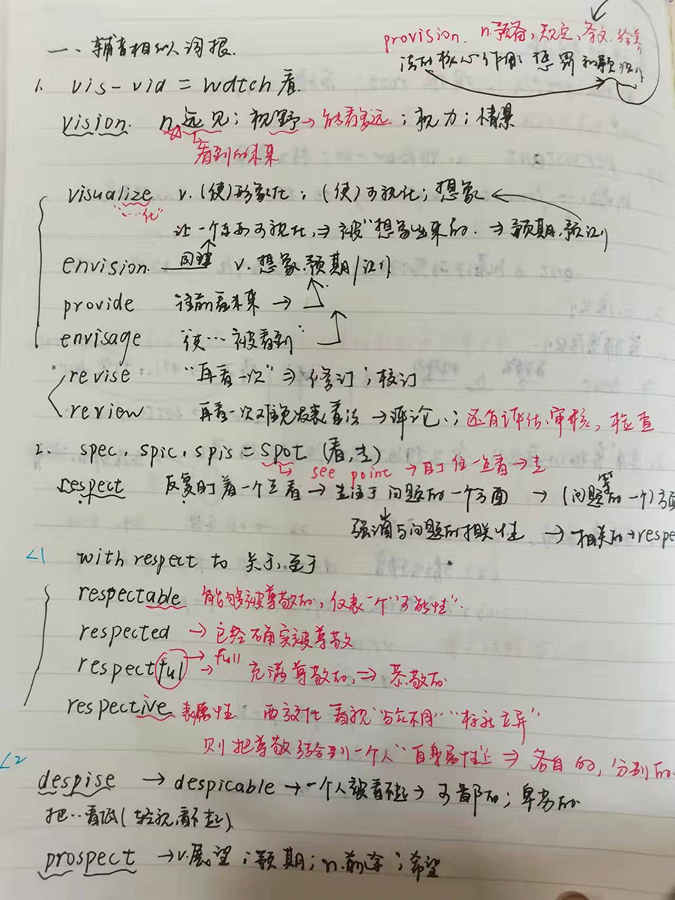 provision. n.预备, 规定, 条文, 给养
一、辅音相似词根.
1. vis-vid = watch 看.
vision. n.远见; 视野→能看多远; 视力; 情景
看到的未来
visualize v.(使)形象化; (使)可视化; 想象
"…化"
让一个东西可视化,⇒被"想象出来的. →预期,预识
envision 同理 v.想象.预期/识
provide 往前看未来 →
envisage "使…被看到"
revise "再看一次"⇒修订; 校订
review 再看一次难免发表看法→评论.; 还有评估.审核, 检查
2. spec, spic, spis = spot (看,点)
see point →盯住一点看→点
respect 反复盯着一个点看→关注于问题的一个方面 →(问题等的一个)方面
强调与问题的相关性 →相关的→respe
<1 with respect to 关于,至于
respectable 能够被尊敬的, 仅表一个"可能性".
respected →已经确实被尊敬
respectful →full 充满尊敬的,⇒恭敬的
respective 表属性: 西方文化看视"与众不同""标新立异"
则把尊敬结合到一个人"自身属性"上⇒各自的, 分别的
<2
despise →despicable→一个人被看不起→可鄙的; 卑劣的
把…看低(轻视,看不起)
prospect →v.展望; 预期; n.前途; 希望